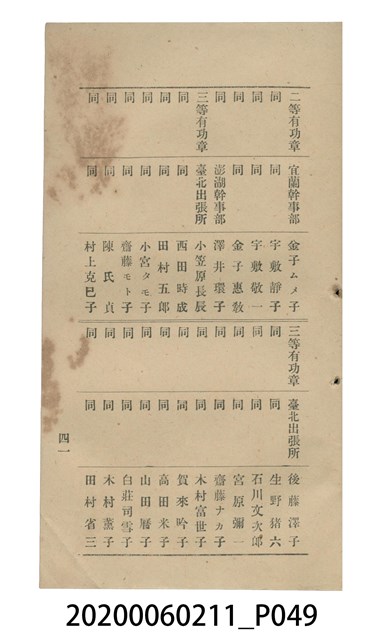 二等有功章 宜蘭幹事部 金子ムメ子
同 同 宇敷靜子
同 同 宇敷敬一
同 同 金子惠敎
同 澎湖幹事部 澤井環子
三等有功章 臺北出張所 小笠原長辰
同 同 西田時成
同 同 田村五郎
同 同 小宮タモ子
同 同 齋藤モト子
同 同 陳氏貞
同 同 村上克巳子
三等有功章 臺北出張所 後藤澤子
同 同 生野猪六
同 同 石川文次郎
同 同 宮原彌一
同 同 齋藤ナカ子
同 同 木村富世子
同 同 賀來吟子
同 同 高田米子
同 同 山田曆子
同 同 白莊司雪子
同 同 木村薰子
同 同 田村省三
四一
20200060211_P049